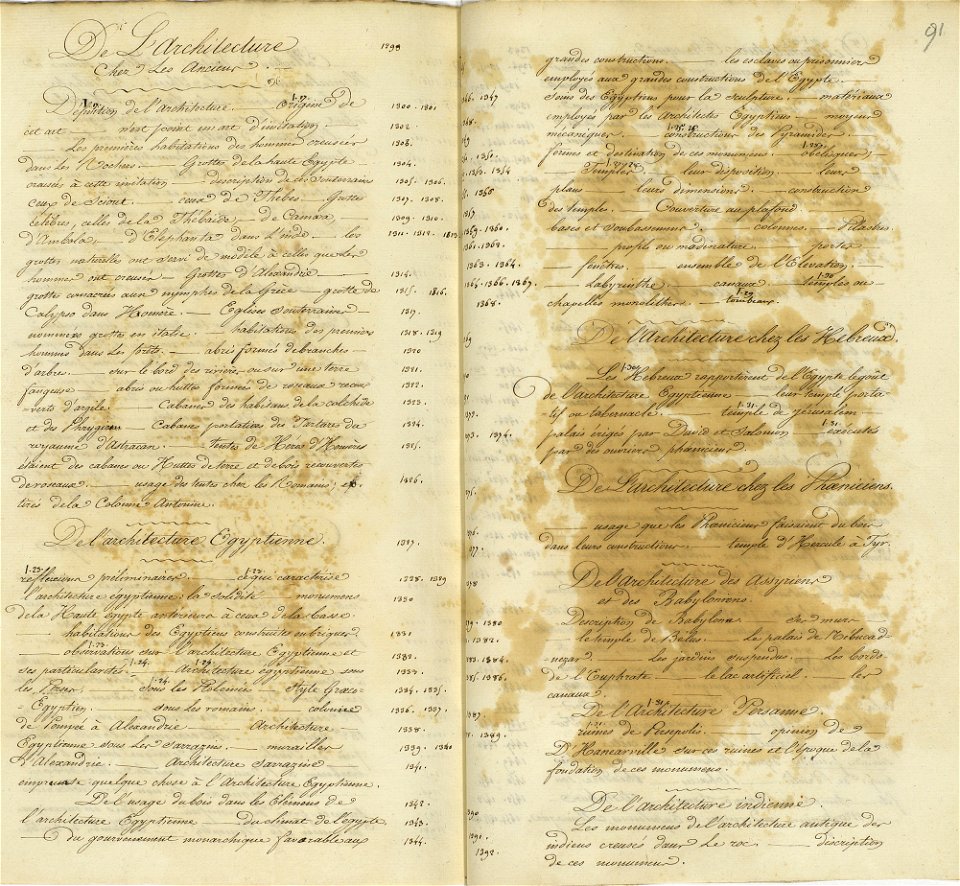 De L'architecture 1299
Chez Les Anciens. —
Definition de l'architecture. — Origine de 1300. 1301
cet art — n'est point un art d'imitation. 1302.
Les premieres habitations des hommes creusées 1303.
dans les Roches. — Grottes de la haute Egypte 1304.
creusées à cette imitation — description des Souterrains 1305. 1306.
ceux de Siout. — ceux de Thèbes — Grottes 1307. 1308.
célèbres, celles de la Thébaïde, — de Camara, 1309. 1310.
d'Ambola, — d'Elephanta dans l'inde. — les 1311. 1312. 1313.
grottes naturelles ont servi de modèle à celles que les
hommes ont creusées — Grottes d'Alexandrie — 1314.
grotte consacrées aux nymphes de la Grèce — grotte de 1315. 1316.
Calypso dans Homère. — Eglises Souterraines — 1317.
nommées grottes en italie. — habitations des premiers 1318. 1319
hommes dans les forêts. — abris formés de branches — 1320
d'arbres. — sur le bord des rivières ou sur une terre 1321.
fangeuse — abris ou huttes formées de roseaux recou- 1322.
-verts d'argile. — Cabanes des habitans de la colchide 1323.
et des Phrygiens — Cabanes portatives des Tartares du 1324.
royaume d'Astracan. — tentes de Heros d'Homère 1325.
étaient des cabanes ou Huttes de terre et de bois recouvertes
de roseaux. — usage des tentes chez les Romains; 1326.
tirés de la Colonne Antonine.
De l'architecture Egyptienne. 1327.
1.23. 1.23.
reflexions préliminaires. — ce qui caractérise 1328. 1329
l'architecture egyptienne: la solidité — monumens 1330
de la Haute égypte anterieurs à ceux de la basse
— habitations des Egyptiens construites en briques 1331
— observations sur l'architecture Egyptienne et 1332.
ses particularités. — Architecture egyptienne sous 1333.
les Perses — Sous les Ptolémées — Style Greco- 1334. 1335.
= Egyptien. — sous les romains. — colonne 1336. 1337.
de Pompée à Alexandrie — Architecture — 1338.
Egyptienne sous les Sarrazins. — murailles 1339. 1340
d'Alexandrie. — Architecture Sarrazine — 1341.
emprunte quelque chose à l'Architecture Egyptienne.
De l'usage du bois dans les Elémens de 1342.
l'architecture Egyptienne — Du climat de l'égypte 1343.
— du gouvernement monarchique favorable aux 1344.
91
grandes constructions. — les esclaves ou prisonniers
employés aux grandes constructions de l'Egypte. —
soins des Egyptiens pour la sculpture. — matériaux
employés par les Architectes Egyptiens — moyens
mécaniques — constructions des Pyramides —
formes et destination de ces monumens. — obélisques;
— Temples — leur disposition. — leurs
plans — leurs dimensions. — construction
des temples. — Couverture au plafond. —
bases et soubassemens. — colonnes. — Pilastres.
— profils ou modénature. — portes
— fenêtres. — ensemble de l'Elevation. —
— Labyrinthe — canaux. — temples ou
chapelles monolithes. — tombeaux.
De l'Architecture chez les Hébreux.
Les Hebreux rapportèrent de l'Egypte le goût
de l'Architecture Egyptienne — leur temple porta-
-tif ou tabernacle. — temple de Jérusalem —
palais érigé par David et Salomon — exécutés
par des ouvriers phéniciens.
De l'architecture chez les Phœniciens.
— usage que les Phœniciens faisaient du bois
dans leurs constructions. — temple d'Hercule à Tyr.
De l'architecture des Assyriens
et des Babyloniens.
Description de Babylone — ses murs
le temple de Belus. — Le palais de Nabucad-
nezar — Les jardins suspendus. — Les bords
de l'Euphrate — le lac artificiel. — les
canaux.
De l'Architecture Persanne.
ruines de Persepolis. — opinion de —
D'Hancarville sur ces ruines et l'époque de la
fondation de ces monumens.
De l'architecture indienne.
Les monumens de l'architecture antique des
indiens creusés dans le roc. — Description
de ces monumens.